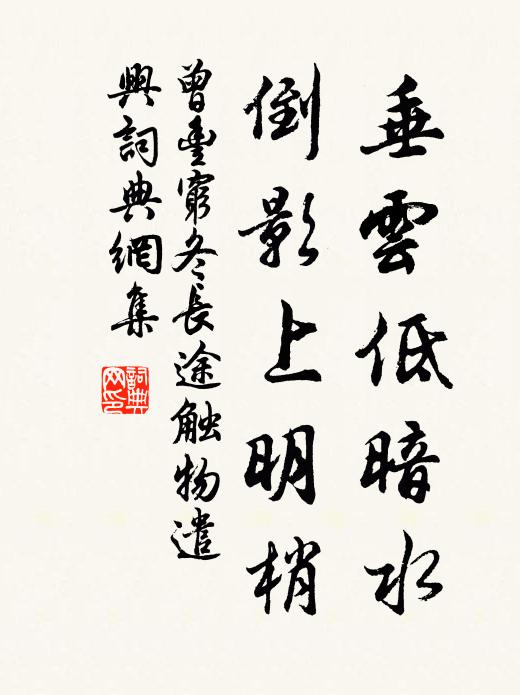 垂雲低暗水
倒影上明梢
曾豐窮冬長途触物遣
興詞典網集
詞典
网印